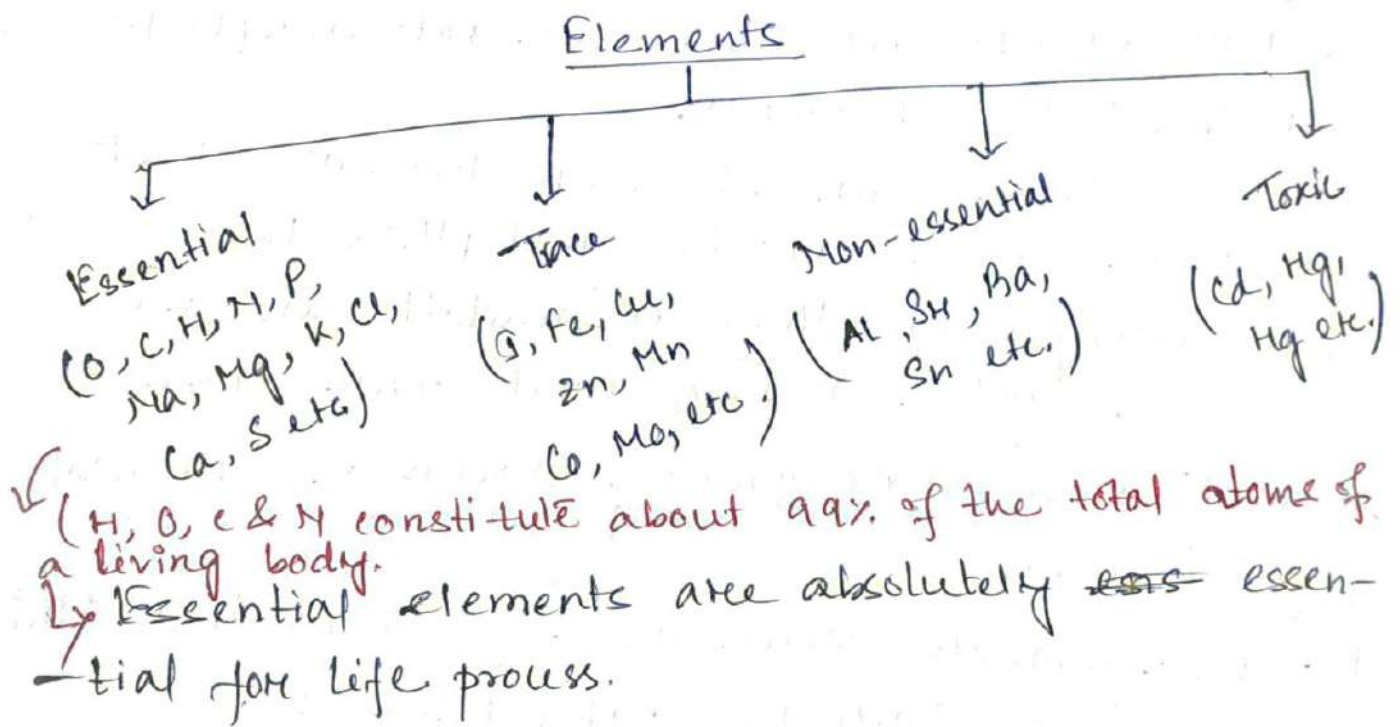 Elements
Essential
(O, C, H, N, P,
Na, Mg, K, Cl,
Ca, S etc)
Trace
(I, Fe, Cu,
Zn, Mn
Co, Mo, etc.)
Non-essential
(Al, Sr, Ba,
Sn etc.)
Toxic
(Cd, Hg,
Hg etc.)
(H, O, C & N constitute about 99% of the total atoms of
a living body.
↳ Essential elements are absolutely essen-
-tial for life process.